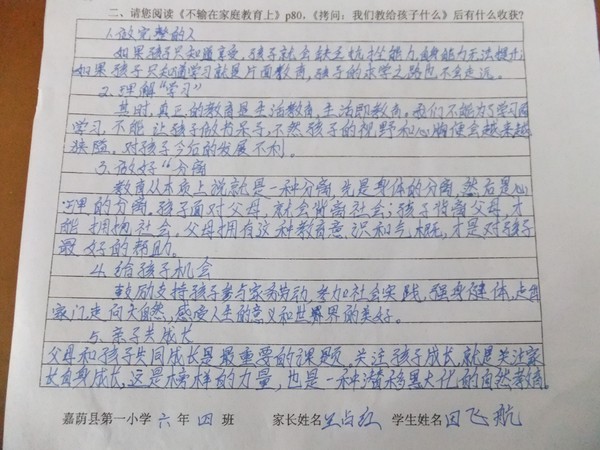 二、请您阅读《不输在家庭教育上》p80,《拷问：我们教给孩子什么》后有什么收获?
1.做完整的人
如果孩子只知道享受,孩子就会缺乏抗挫能力,身能力无法提升;
如果孩子只知道学习就是片面教育,孩子的求学之路也不会走远。
2.理解“学习”
其时,真正的教育是生活教育,生活即教育。我们不能为了学习而
学习,不能让孩子做书呆子,不然孩子的视野和心胸便会越来越
狭隘,对孩子今后的发展不利。
3.做好“分离
教育从本质上说就是一种分离,先是身体的分离,然后是心
理的分离。孩子面对父母,就会背离社会;孩子背离父母,才
能拥抱社会。父母拥有这种教育意识和气概,才是对孩子
最好的帮助。
4.给孩子机会
鼓励支持孩子参与家务劳动,参加社会实践,强身健体,走出
家门,走向大自然,感受人生的意义和世界的美好。
5.亲子共成长
父母和孩子共同成长是最重要的课题,关注孩子成长,就是关注家
长自身成长,这是榜样的力量,也是一种潜移黑大化的自然教育。
嘉荫县第一小学六年四班 家长姓名 占红 学生姓名田飞航